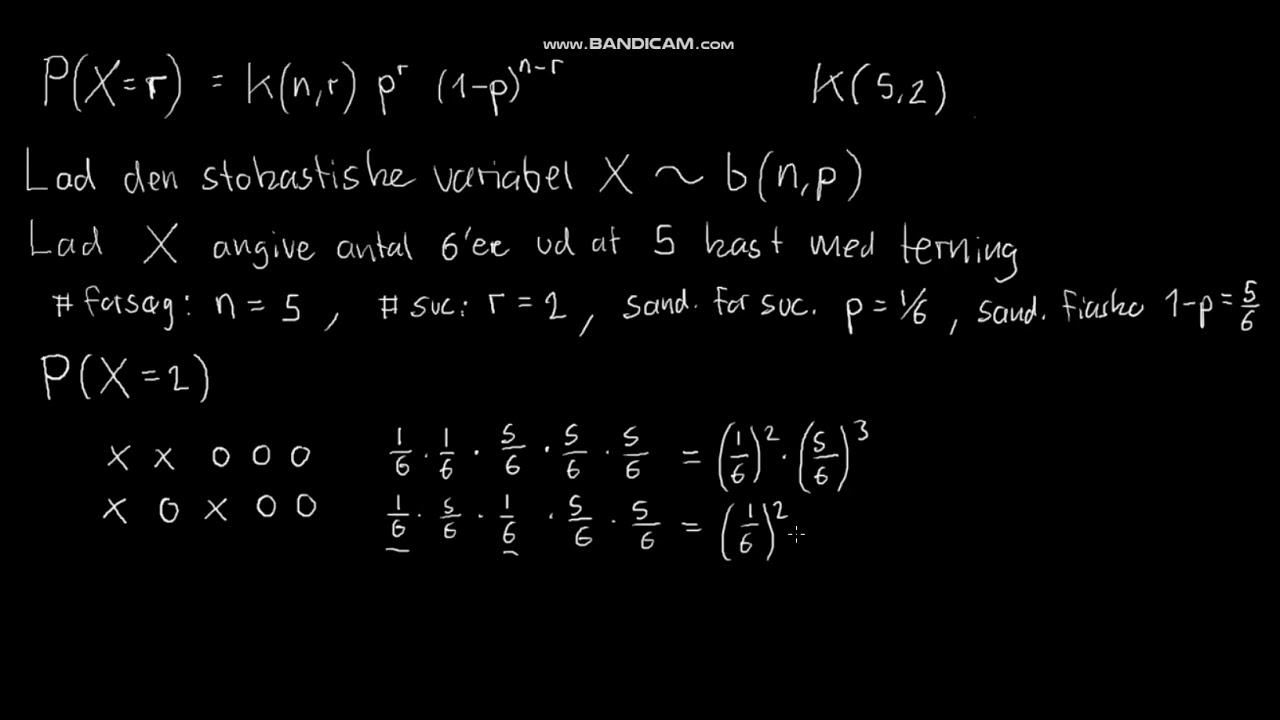 www.BANDICAM.com
P(X=r) = K(n,r) p^r (1-p)^{n-r} K(5,2)
Lad den stokastiske variabel X ~ b(n,p)
Lad X angive antal 6'er ud af 5 kast med terning
# forsøg: n = 5, # suc: r = 2, sand. for suc. p = 1/6, sand. fiasko 1-p = 5/6
P(X=2)
X X O O O 1/6 · 1/6 · 5/6 · 5/6 · 5/6 = (1/6)^2 · (5/6)^3
X O X O O 1/6 · 5/6 · 1/6 · 5/6 · 5/6 = (1/6)^2